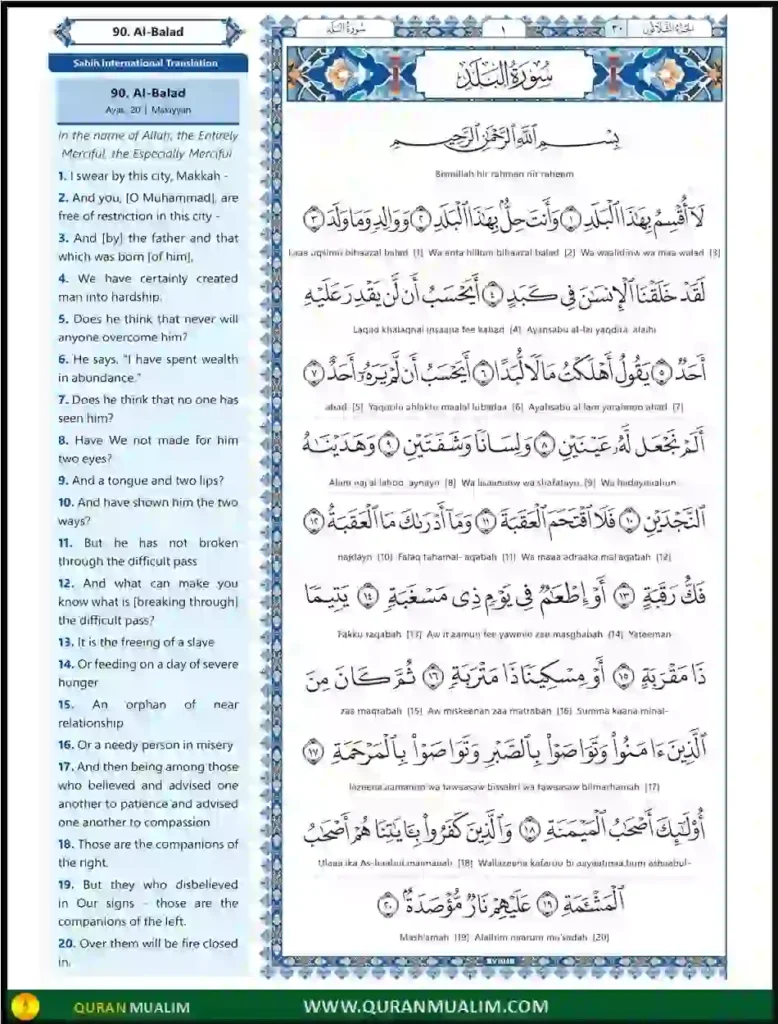 90. Al-Balad
Sahih International Translation
90. Al-Balad
Ayas. 20 | Makiyyah
In the name of Allah, the Entirely
Merciful, the Especially Merciful
1. I swear by this city, Makkah -
2. And you, [O Muhammad], are
free of restriction in this city -
3. And [by] the father and that
which was born [of him],
4. We have certainly created
man into hardship.
5. Does he think that never will
anyone overcome him?
6. He says, "I have spent wealth
in abundance."
7. Does he think that no one has
seen him?
8. Have We not made for him
two eyes?
9. And a tongue and two lips?
10. And have shown him the two
ways?
11. But he has not broken
through the difficult pass
12. And what can make you
know what is [breaking through]
the difficult pass?
13. It is the freeing of a slave
14. Or feeding on a day of severe
hunger
15. An orphan of near
relationship
16. Or a needy person in misery
17. And then being among those
who believed and advised one
another to patience and advised
one another to compassion
18. Those are the companions of
the right.
19. But they who disbelieved
in Our signs - those are the
companions of the left.
20. Over them will be fire closed
in.
سُورَةُ البَلَد
١
٣٠
سُورَةُ البَلَدِ
بِسْمِ اللَّهِ الرَّحْمَٰنِ الرَّحِيمِ
Bismillah hir rahman nir raheem
لَآ أُقْسِمُ بِهَٰذَا ٱلْبَلَدِ ١ وَأَنتَ حِلٌّۢ بِهَٰذَا ٱلْبَلَدِ ٢ وَوَالِدٍ وَمَا وَلَدَ ٣
Laaa uqsimu bihaazal balad (1) Wa anta hillum bihaazal balad (2) Wa waalidinw wa maa walad (3)
لَقَدْ خَلَقْنَا ٱلْإِنسَٰنَ فِى كَبَدٍ ٤ أَيَحْسَبُ أَن لَّن يَقْدِرَ عَلَيْهِ
Laqad khalaqnal insaana fee kabad (4) Ayahsabu al-lai yaqdira alaihi
أَحَدٌ ٥ يَقُولُ أَهْلَكْتُ مَالًا لُّبَدًا ٦ أَيَحْسَبُ أَن لَّمْ يَرَهُۥٓ أَحَدٌ ٧
ahad (5) Yaqoolu ahlaktu maalal lubadaa (6) Ayahsabu al lam yarahooo ahad (7)
أَلَمْ نَجْعَل لَّهُۥ عَيْنَيْنِ ٨ وَلِسَانًا وَشَفَتَيْنِ ٩ وَهَدَيْنَٰهُ
Alam naj'al lahoo aynayn (8) Wa lisaananw wa shafatayn (9) Wa hadaynaahun
ٱلنَّجْدَيْنِ ١٠ فَلَا ٱقْتَحَمَ ٱلْعَقَبَةَ ١١ وَمَآ أَدْرَىٰكَ مَا ٱلْعَقَبَةُ ١٢
najdayn (10) Falaq tahamal- aqabah (11) Wa maaa adraaka mal aqabah (12)
فَكُّ رَقَبَةٍ ١٣ أَوْ إِطْعَٰمٌ فِى يَوْمٍ ذِى مَسْغَبَةٍ ١٤ يَتِيمًا
Fakku raqabah (13) Aw it'aamun fee yawmin zee masghabah (14) Yateeman
ذَا مَقْرَبَةٍ ١٥ أَوْ مِسْكِينًا ذَا مَتْرَبَةٍ ١٦ ثُمَّ كَانَ مِنَ
zaa maqrabah (15) Aw miskeenan zaa matrabah (16) Summa kaana minal-
ٱلَّذِينَ ءَامَنُوا۟ وَتَوَاصَوْا۟ بِٱلصَّبْرِ وَتَوَاصَوْا۟ بِٱلْمَرْحَمَةِ ١٧
lazeena aamanoo wa tawaasaw bissabri wa tawaasaw bilmarhamah (17)
أُو۟لَٰٓئِكَ أَصْحَٰبُ ٱلْمَيْمَنَةِ ١٨ وَٱلَّذِينَ كَفَرُوا۟ بِـَٔايَٰتِنَا هُمْ أَصْحَٰبُ
Ulaaa'ika As-haabul maimanah (18) Wallazeena kafaroo bi aayaatinaa hum ashaabul-
ٱلْمَشْـَٔمَةِ ١٩ عَلَيْهِمْ نَارٌ مُّؤْصَدَةٌۢ ٢٠
Mash'amah (19) Alaihim naarum mu'sadah (20)
QURAN MUALIM
WWW.QURANMUALIM.COM